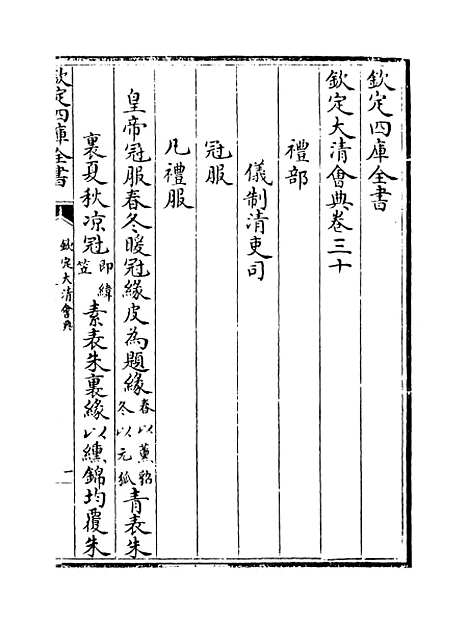 欽定四庫全書
欽定大清會典卷三十
禮部
儀制清吏司
冠服
凡禮服
皇帝冠服春冬暖冠緣皮為題緣春以薰貂冬以元狐青表朱
裏夏秋涼冠即緯笠素表朱裏緣以纁錦均覆朱
欽定四庫全書
欽定大清會典
一